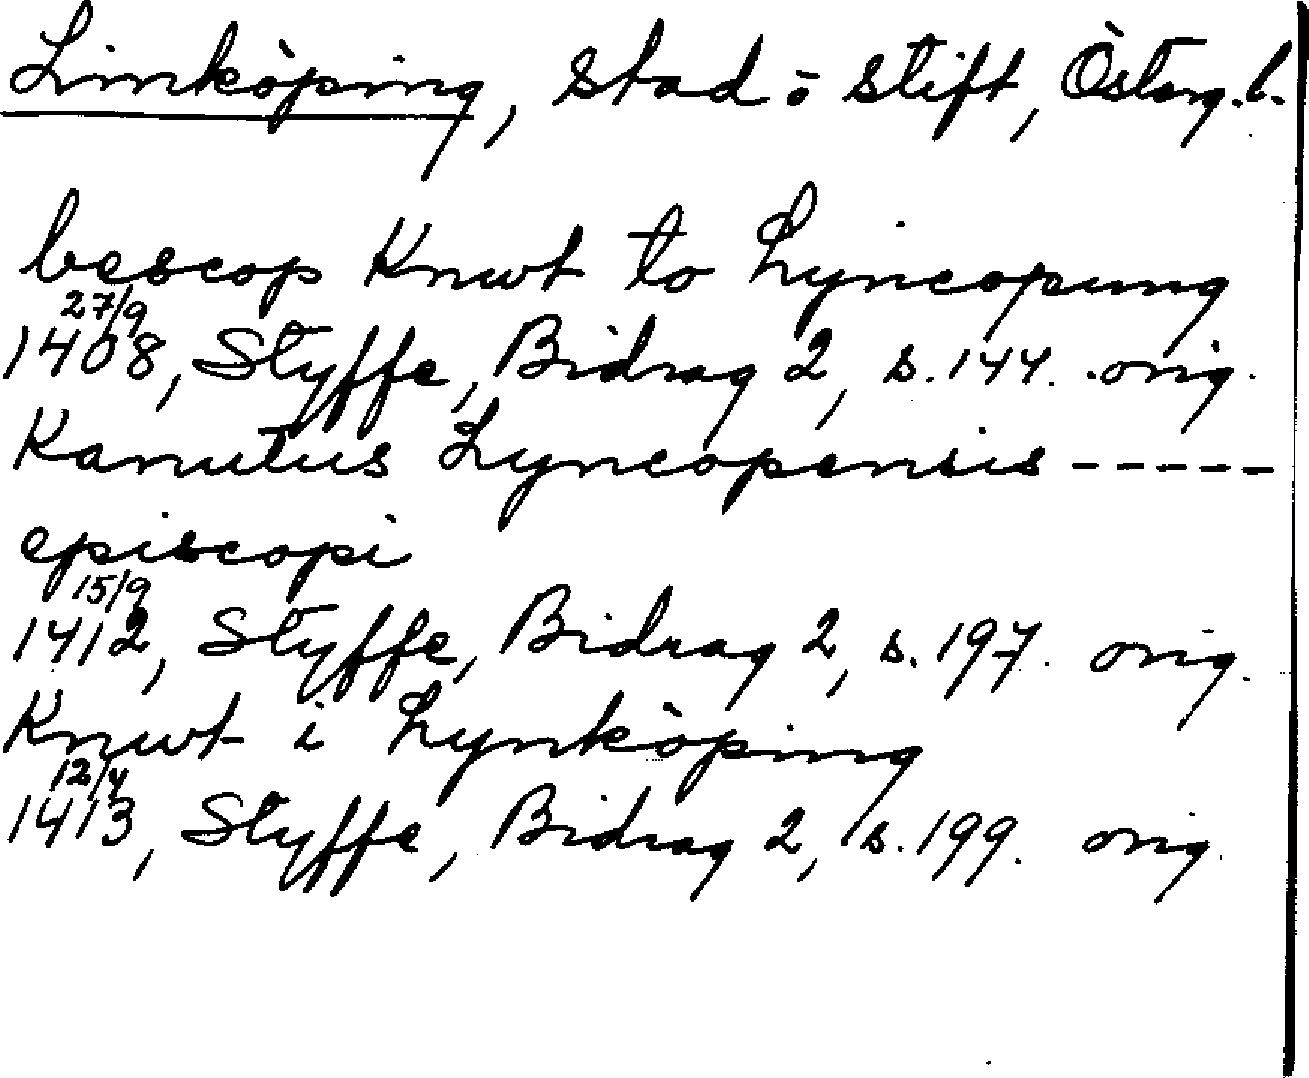 Linköping, stad o stift, Österg. l.
bescop Knwt to Lyncopung
27/9
1408, Styffe, Bidrag 2, s. 144. orig.
Kanutus Lyncopensis -----
episcopi
15/9
1412, Styffe, Bidrag 2, s. 197. orig.
Knwt i Lynköping
12/4
1413, Styffe, Bidrag 2, s. 199. orig.